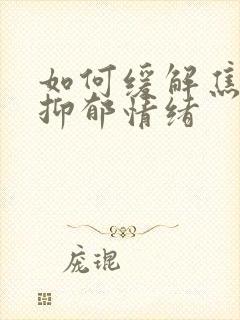 如何缓解焦
抑郁情绪
庞琨